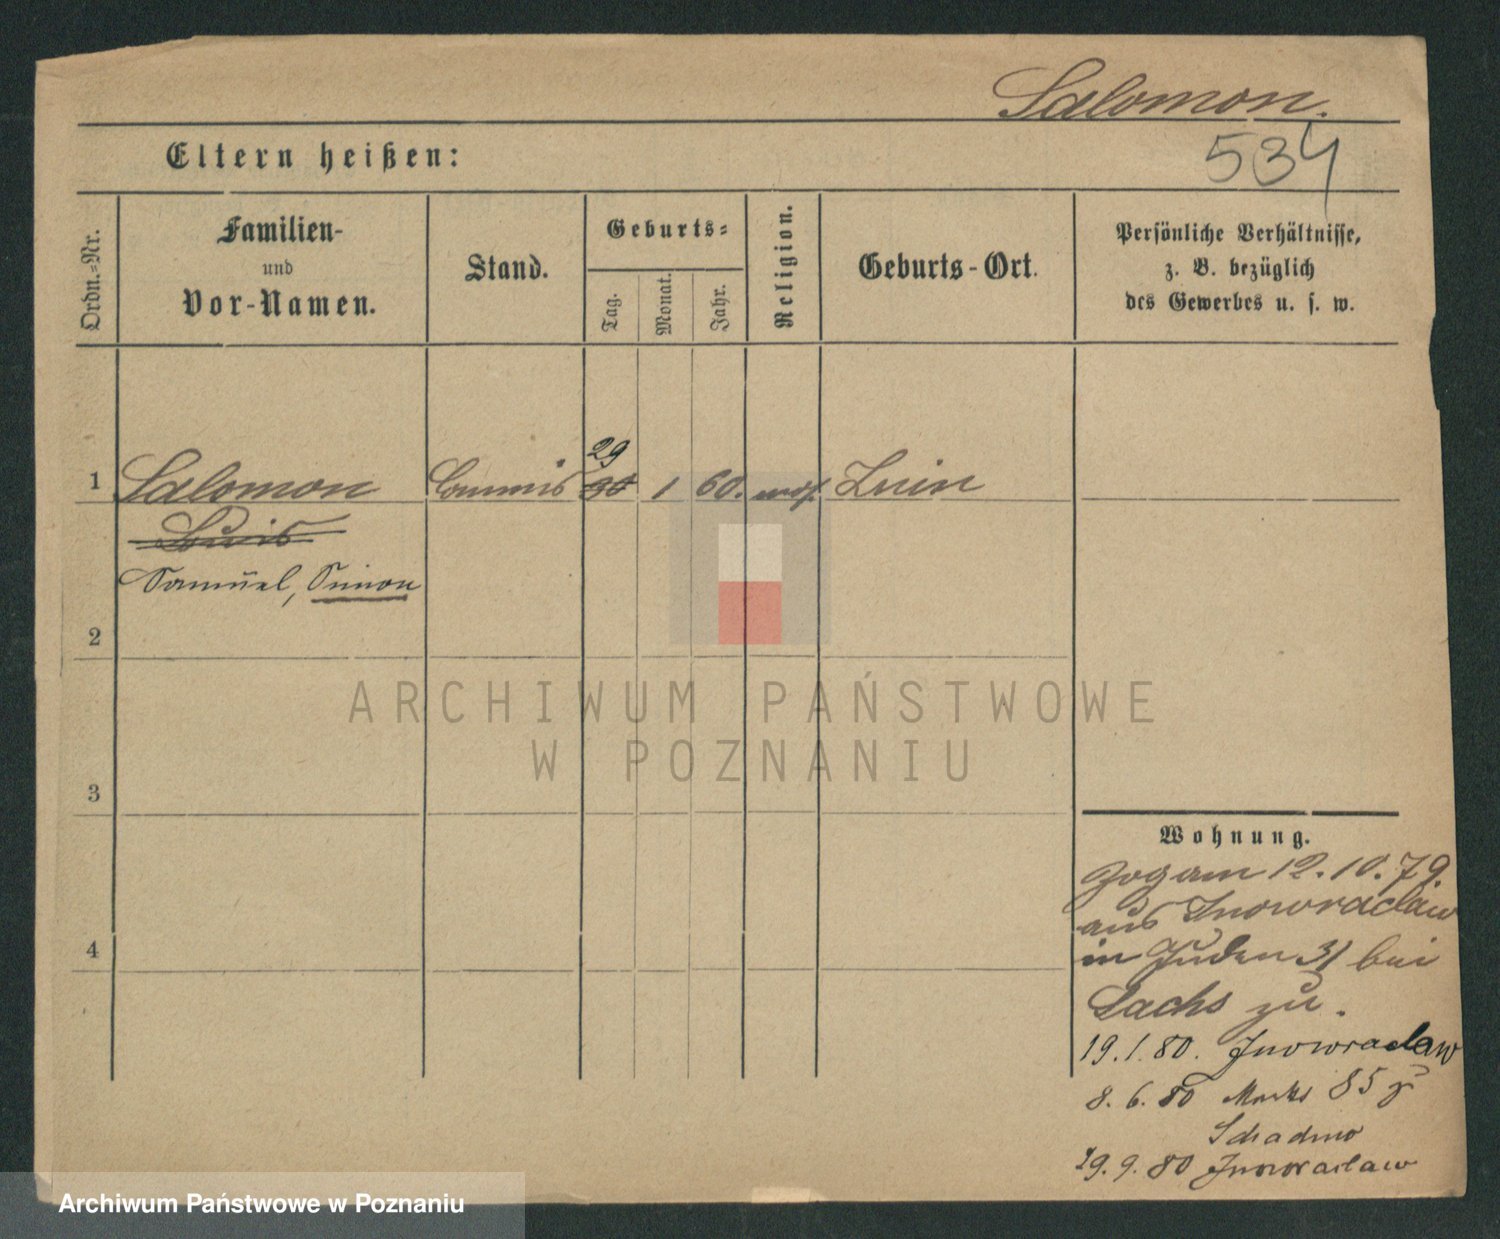 Salomon.
Eltern heißen:
534
Ordn.-Nr.
Familien-
und
Vor-Namen.
Stand.
Geburts-
Tag.
Monat.
Jahr.
Religion.
Geburts-Ort.
Persönliche Verhältnisse,
z. B. bezüglich
des Gewerbes u. s. w.
29
1 Salomon Commis 30 1 60. mos. Znin
Louis
Samuel, Simon
2
3
4
ARCHIWUM PAŃSTWOWE
W POZNANIU
Wohnung.
Zog am 12.10.79
aus Inowraclaw
in Juden 31 bei
Sachs zu.
19.1.80. Inowraclaw
8.6.80 Markt 85
29.9.80 Inowraclaw
Archiwum Państwowe w Poznaniu